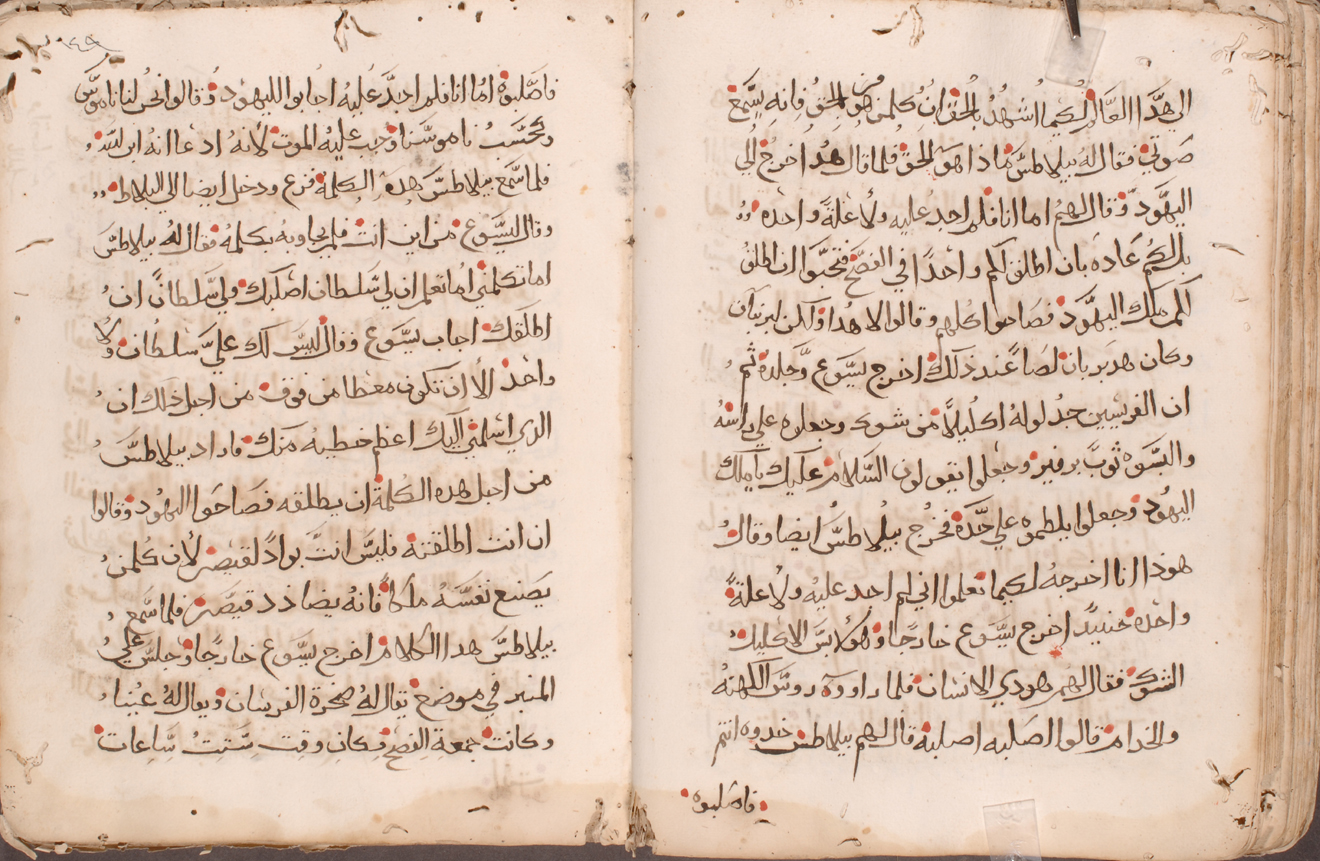 الي هدا العالم لكيما اشهد بالحق ان كلمن هو الحق فانه يسمع
صوتي فقال له بيلاطس ما ذا هو الحق فلما قال هدا خرج الي
اليهود وقال لهم اما انا فلم اجد عليه ولا علة واحده
بل لكم عاده بان اطلق لكم واحدا في الفصح فتحبوا ان اطلق
لكم ملك اليهود فصاحوا كلهم وقالوا لا هدا ولكن لبربان
وكان هدبربان لصا عند ذلك اخرج يسوع وجلده ثم
ان الفريسين جدلوا له اكليلا من شوك وجعلوه علي راسه
والبسوه ثوب برفير وجعلوا يقولون السلام عليك يا ملك
اليهود وجعلوا يلطموه علي خده فخرج بيلاطس ايضا وقال
هودا انا اخرجه لكيما تعلموا اني لم اجد عليه ولا علة
واحده حنيئد اخرج يسوع خارجا وهو لابس الاكليل
الشوك فقال لهم هودي الانسان فلما راووه روس الكهنه
والخدام قالوا اصلبه اصلبه قال لهم بيلاطس خدوه انتم
فاصلبوه
١٤٩
فاصلبوه اما انا فلم اجد عليه اجابوا اليهود وقالوا نحن لنا ناموس
وكحسب ناموسنا وجب عليه الموت لانه ادعا انه ابن الله
فلما سمع بيلاطس هده الكلمة فزع ودخل ايضا الي البلاط
وقال ليسوع من اين انت فلم يجاوبه بكلمه فقال له بيلاطس
اما تكلمني اما تعلم ان لي سلطان اصلبك ولي سلطانا ان
اطلقك اجاب يسوع وقال ليس لك علي سلطان ولا
واحد الا ان تكون معطا من فوق من اجل ذلك ان
الذي اسلمني اليك اعظم خطيه منك فاراد بيلاطس
من اجل هده الكلمة ان يطلقه فصاحوا اليهود وقالوا
ان انت اطلقته فليس انت بوادا لقيصر لان كلمن
يصنع نفسه ملكا فانه يضادد قيصر فلما سمع
بيلاطس هدا الكلام اخرج يسوع خارجا وجلس علي
المنبر في موضع يقال له صخرة الفرسان ويقال له عبنيا
وكانت جمعة الفصح وكان وقت ستت ساعات